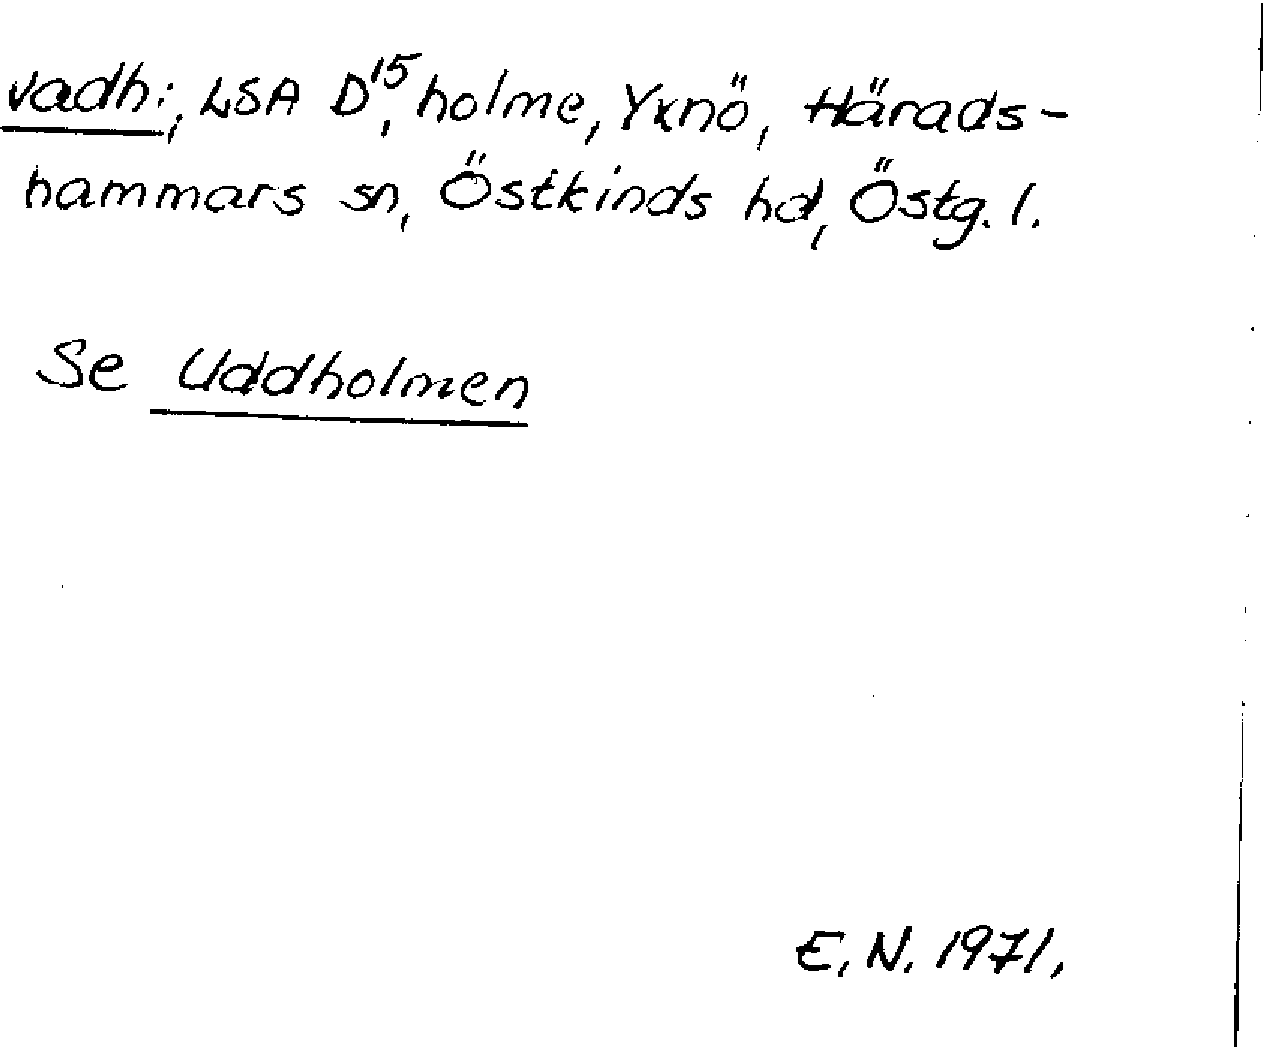 vadh:, LSA D¹⁵, holme, Yxnö, Härads-
hammars sn, Östkinds hd, Östg. l.
Se Uddholmen
E. N. 1971.